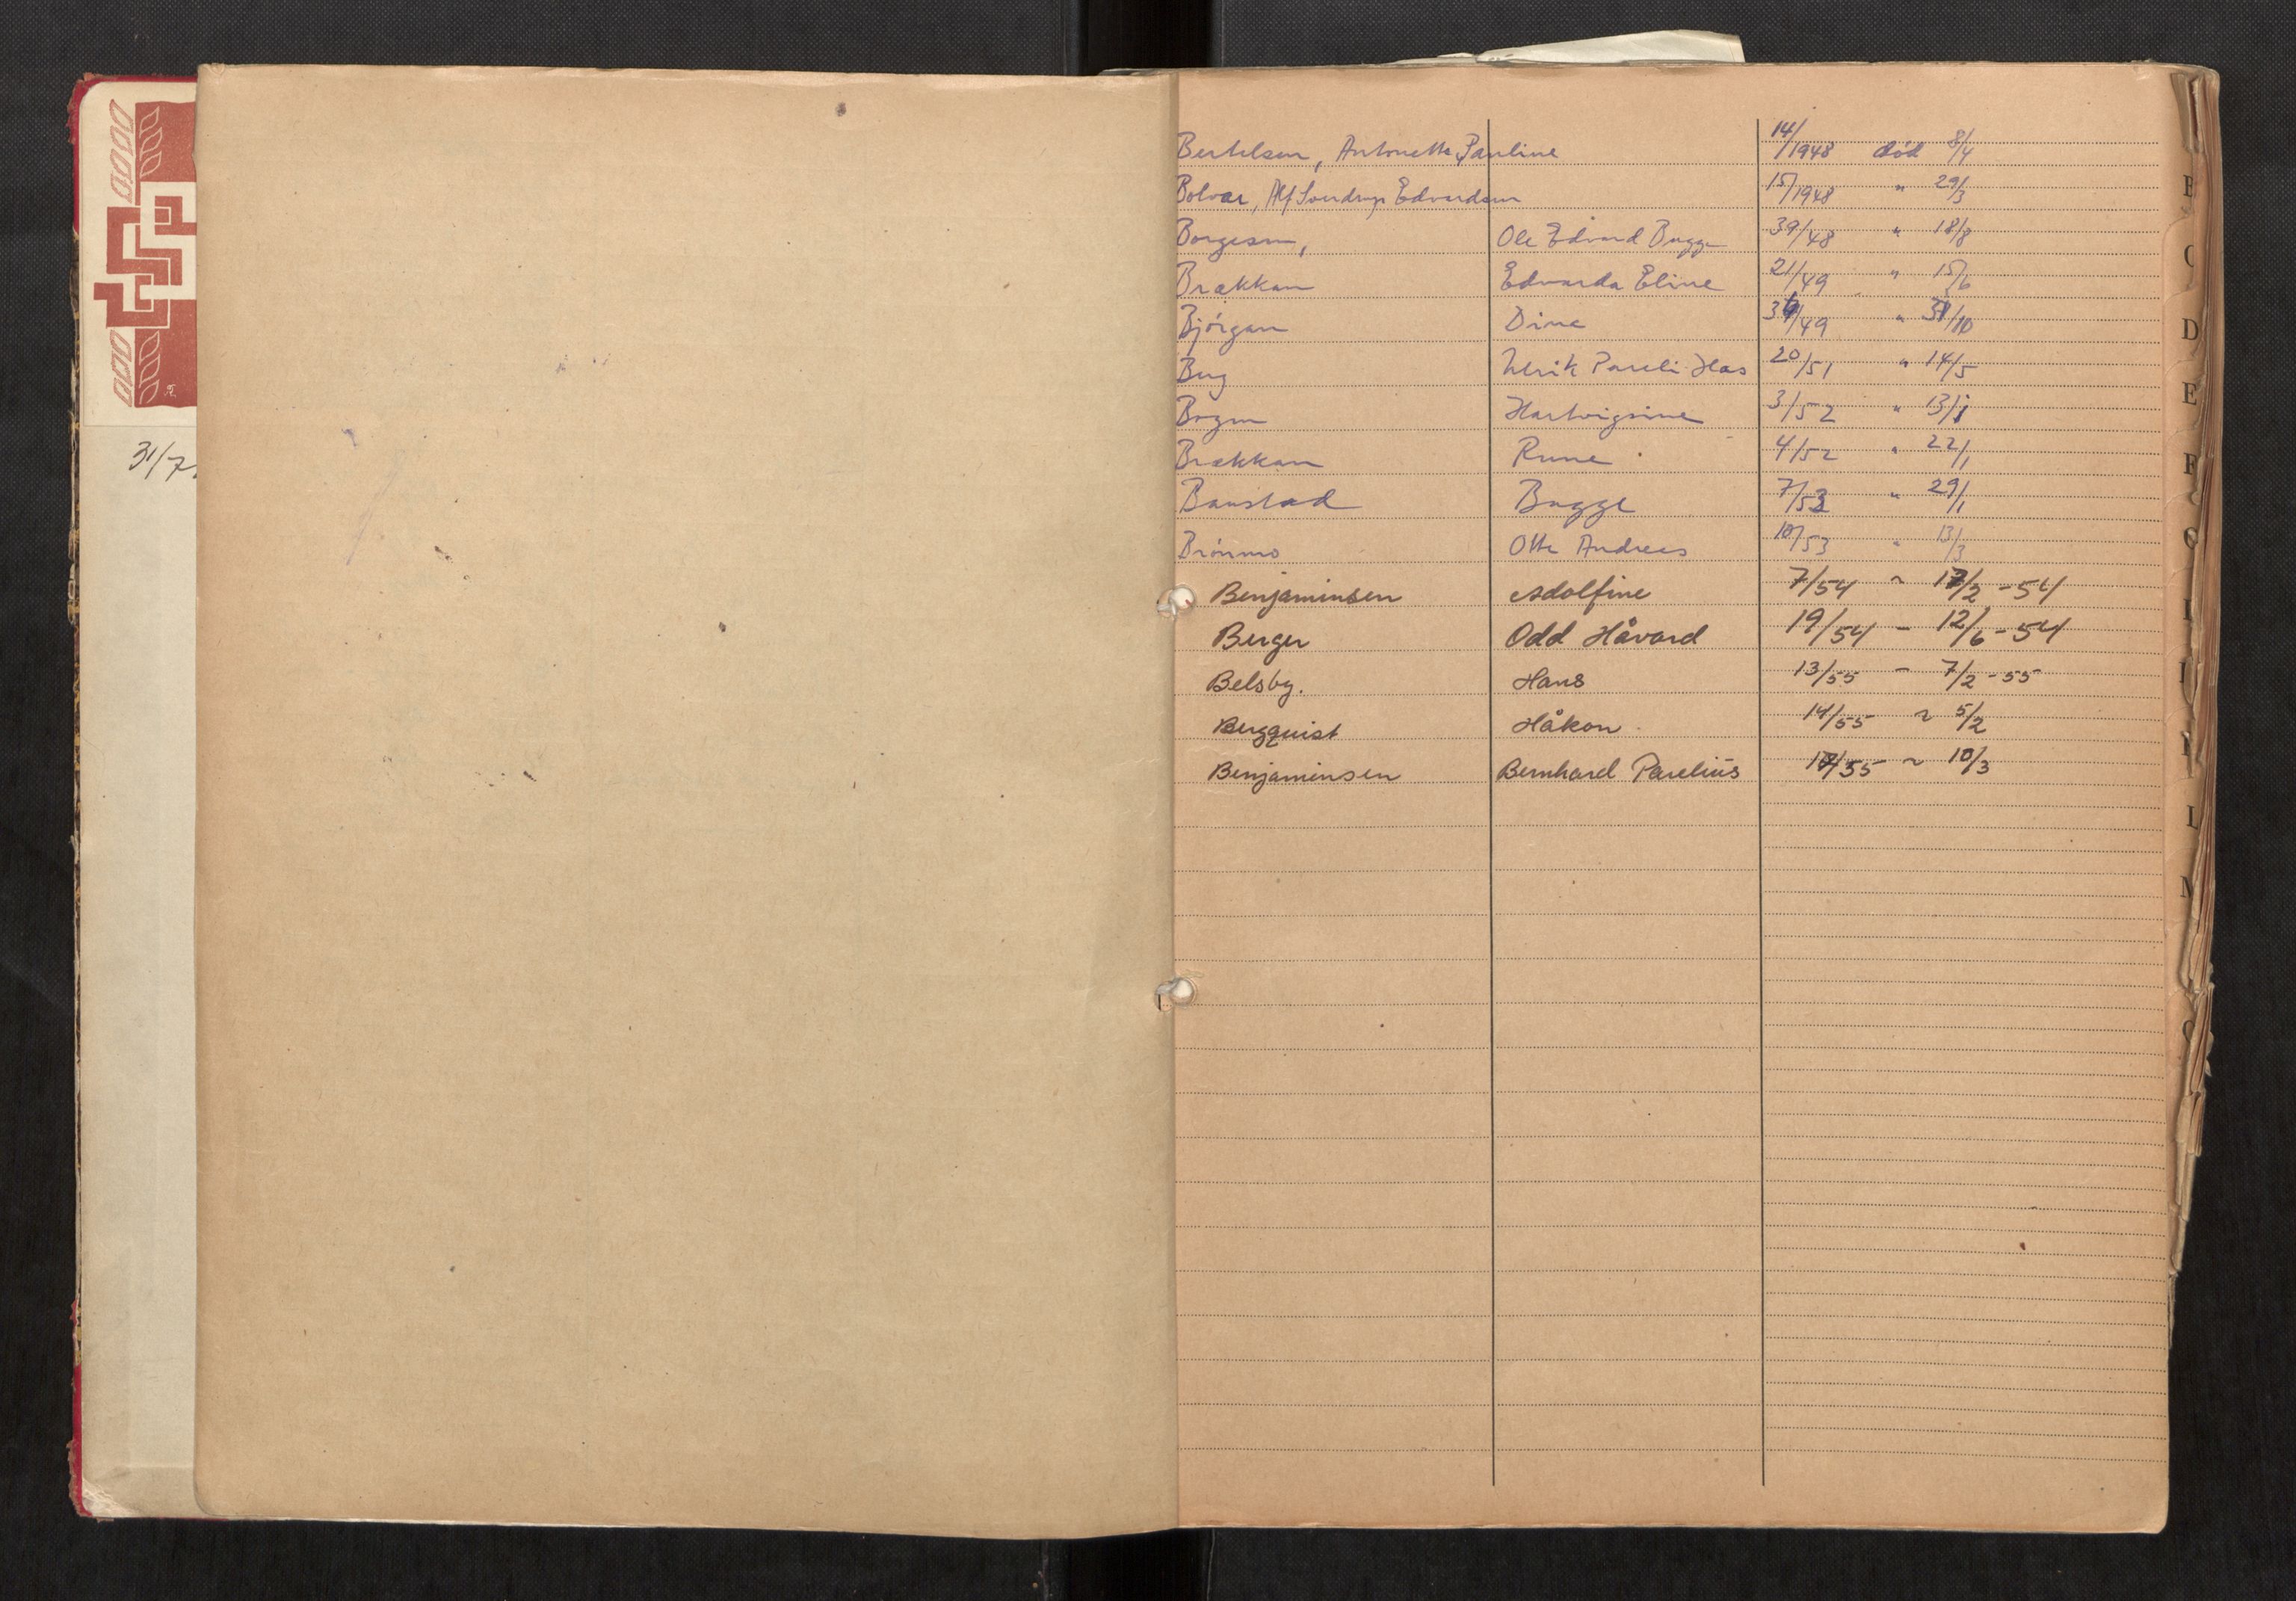 31/7
Bertelsen, Antonette Pauline 14/1948 død 8/4
Bolvær, Alf Sverdrup Edvardsen 15/1948 " 29/3
Borgesen, Ole Edvard Bugge 39/48 " 18/8
Brækkan Edvarda Eline 21/49 " 15/6
Bjørgan Dina /49 " 31/10
Berg Ulrik Pareli 20/51 " 14/5
Bogen Hartvigsine 3/52 " 13/1
Brækkan Rune 4/52 " 22/1
Banstad Bugge 7/53 " 29/1
Brønmo Otto Andreas 10/53 " 13/3
Benjaminsen Adolfine 7/54 ~ 17/2 - 54
Berger Odd Håvard 19/54 - 12/6 - 54
Belsby. Hans 13/55 - 7/2 - 55
Bergquist Håkon 14/55 ~ 5/2
Benjaminsen Bernhard Parelius /55 ~ 10/3
B
C
D
E
F
G
L
M